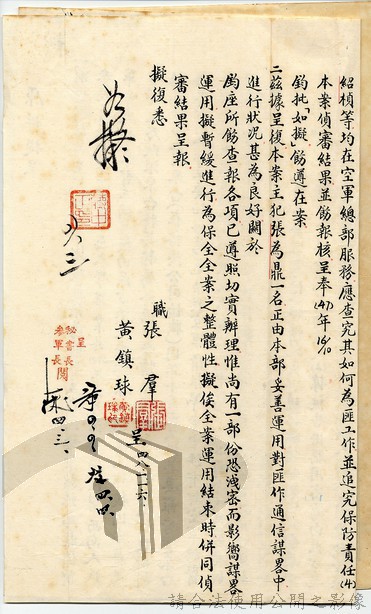 紹楨等均在空軍總部服務應查究其如何為匪工作並追究保防責任(4)
本案偵審結果並飭報核呈奉(47)年10/10
鈞批「如擬」飭遵在案
二茲據呈復本案主犯張為鼎一名正由本部妥善運用對匪作通信謀畧中
進行狀況甚為良好關於
鈞座所飭查報各項已遵照切實辦理惟尚有一部份恐洩密而影嚮謀畧
運用擬暫緩進行為保全全案之整體性擬俟全案運用結束時併同偵
審結果呈報
擬復悉
職張羣
黃鎮球
呈四八一一六、
呈
秘書長
參軍長
閱
如擬
請合法使用公開之影像